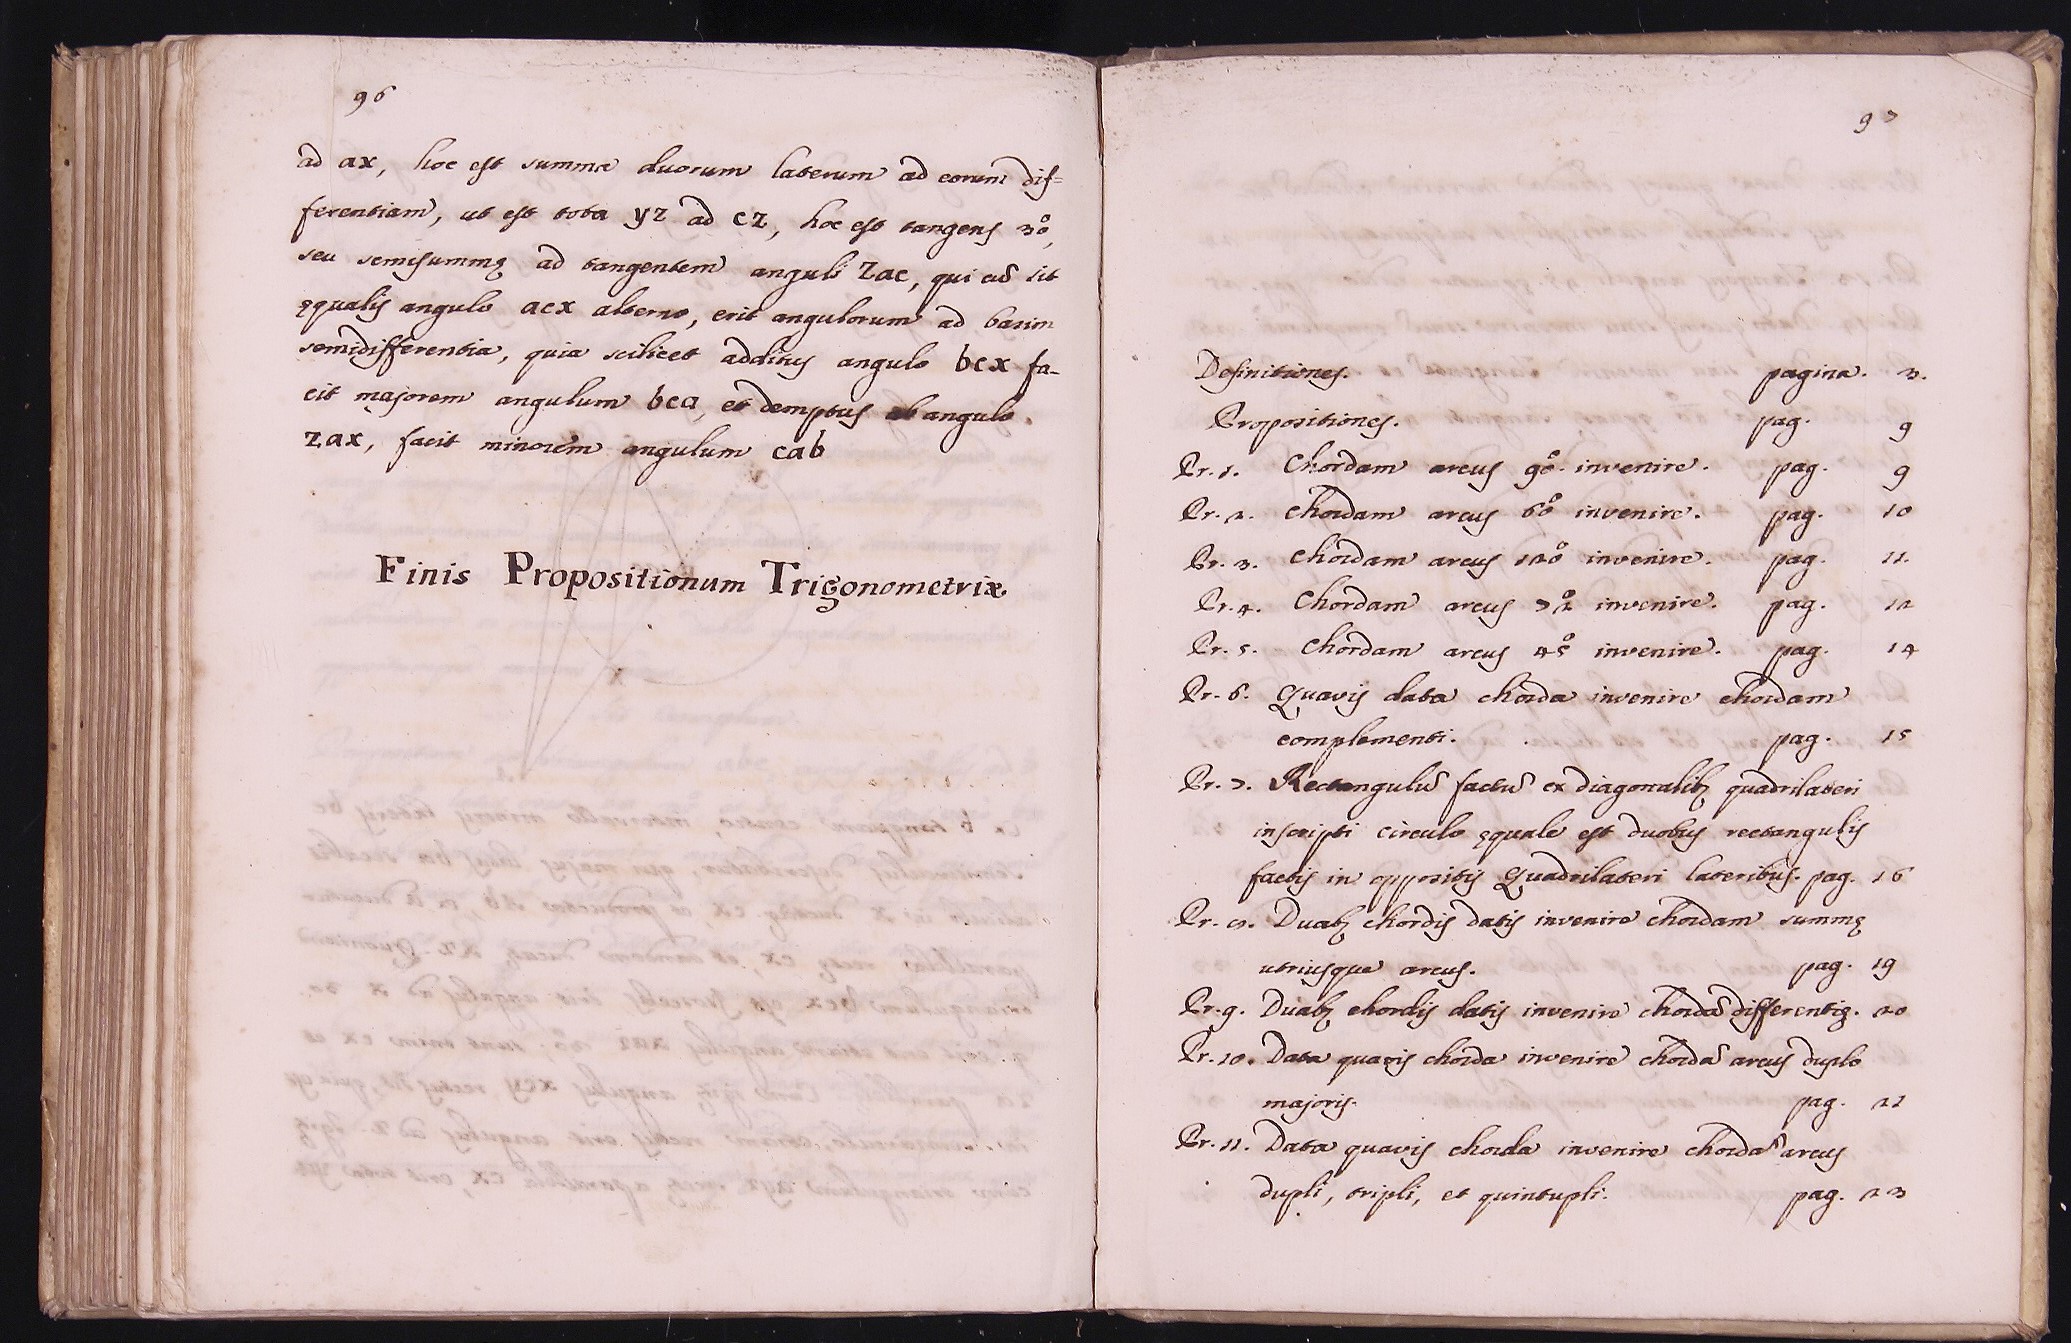 96
ad ax, hoc est summa duorum laterum ad eorum dif=
ferentiam, ut est tota yz ad cz, hoc est tangens 30°,
seu semisummę ad tangentem anguli zac, qui cū sit
ęqualis angulo acx alterno, erit angulorum ad basim
semidifferentia, quia scilicet additus angulo bcx fa-
cit majorem angulum bca, et demptus ab angulo
zax, facit minorem angulum cab
Finis Propositionum Trigonometriæ.
97
Definitiones. pagina. 3.
Propositiones. pag. 9
Pr. 1. Chordam arcus 90°. invenire. pag. 9
Pr. 2. Chordam arcus 60° invenire. pag. 10
Pr. 3. Chordam arcus 120° invenire. pag. 11.
Pr. 4. Chordam arcus 72° invenire. pag. 12
Pr. 5. Chordam arcus 45° invenire. pag. 14
Pr. 6. Quavis data chorda invenire chordam
complementi. pag. 15
Pr. 7. Rectangulū factū ex diagonalibꝫ quadrilateri
inscripti circulo ęquale est duobus rectangulis
factis in oppositis Quadrilateri lateribus. pag. 16
Pr. 8. Duabꝫ chordis datis invenire chordam summę
utriusque arcus. pag. 19
Pr. 9. Duabꝫ chordis datis invenire chordā differentię. 20
Pr. 10. Data quavis chorda invenire chordā arcus duplo
majoris. pag. 22
Pr. 11. Data quavis chorda invenire chordā arcus
dupli, tripli, et quintupli. pag. 23